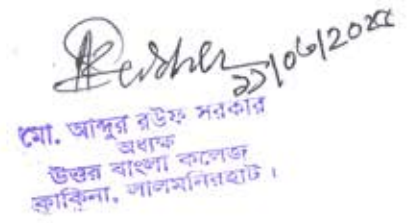 মো. আব্দুর রউফ সরকার
অধ্যক্ষ
উত্তর বাংলা কলেজ
কাকিনা, লালমনিরহাট ।